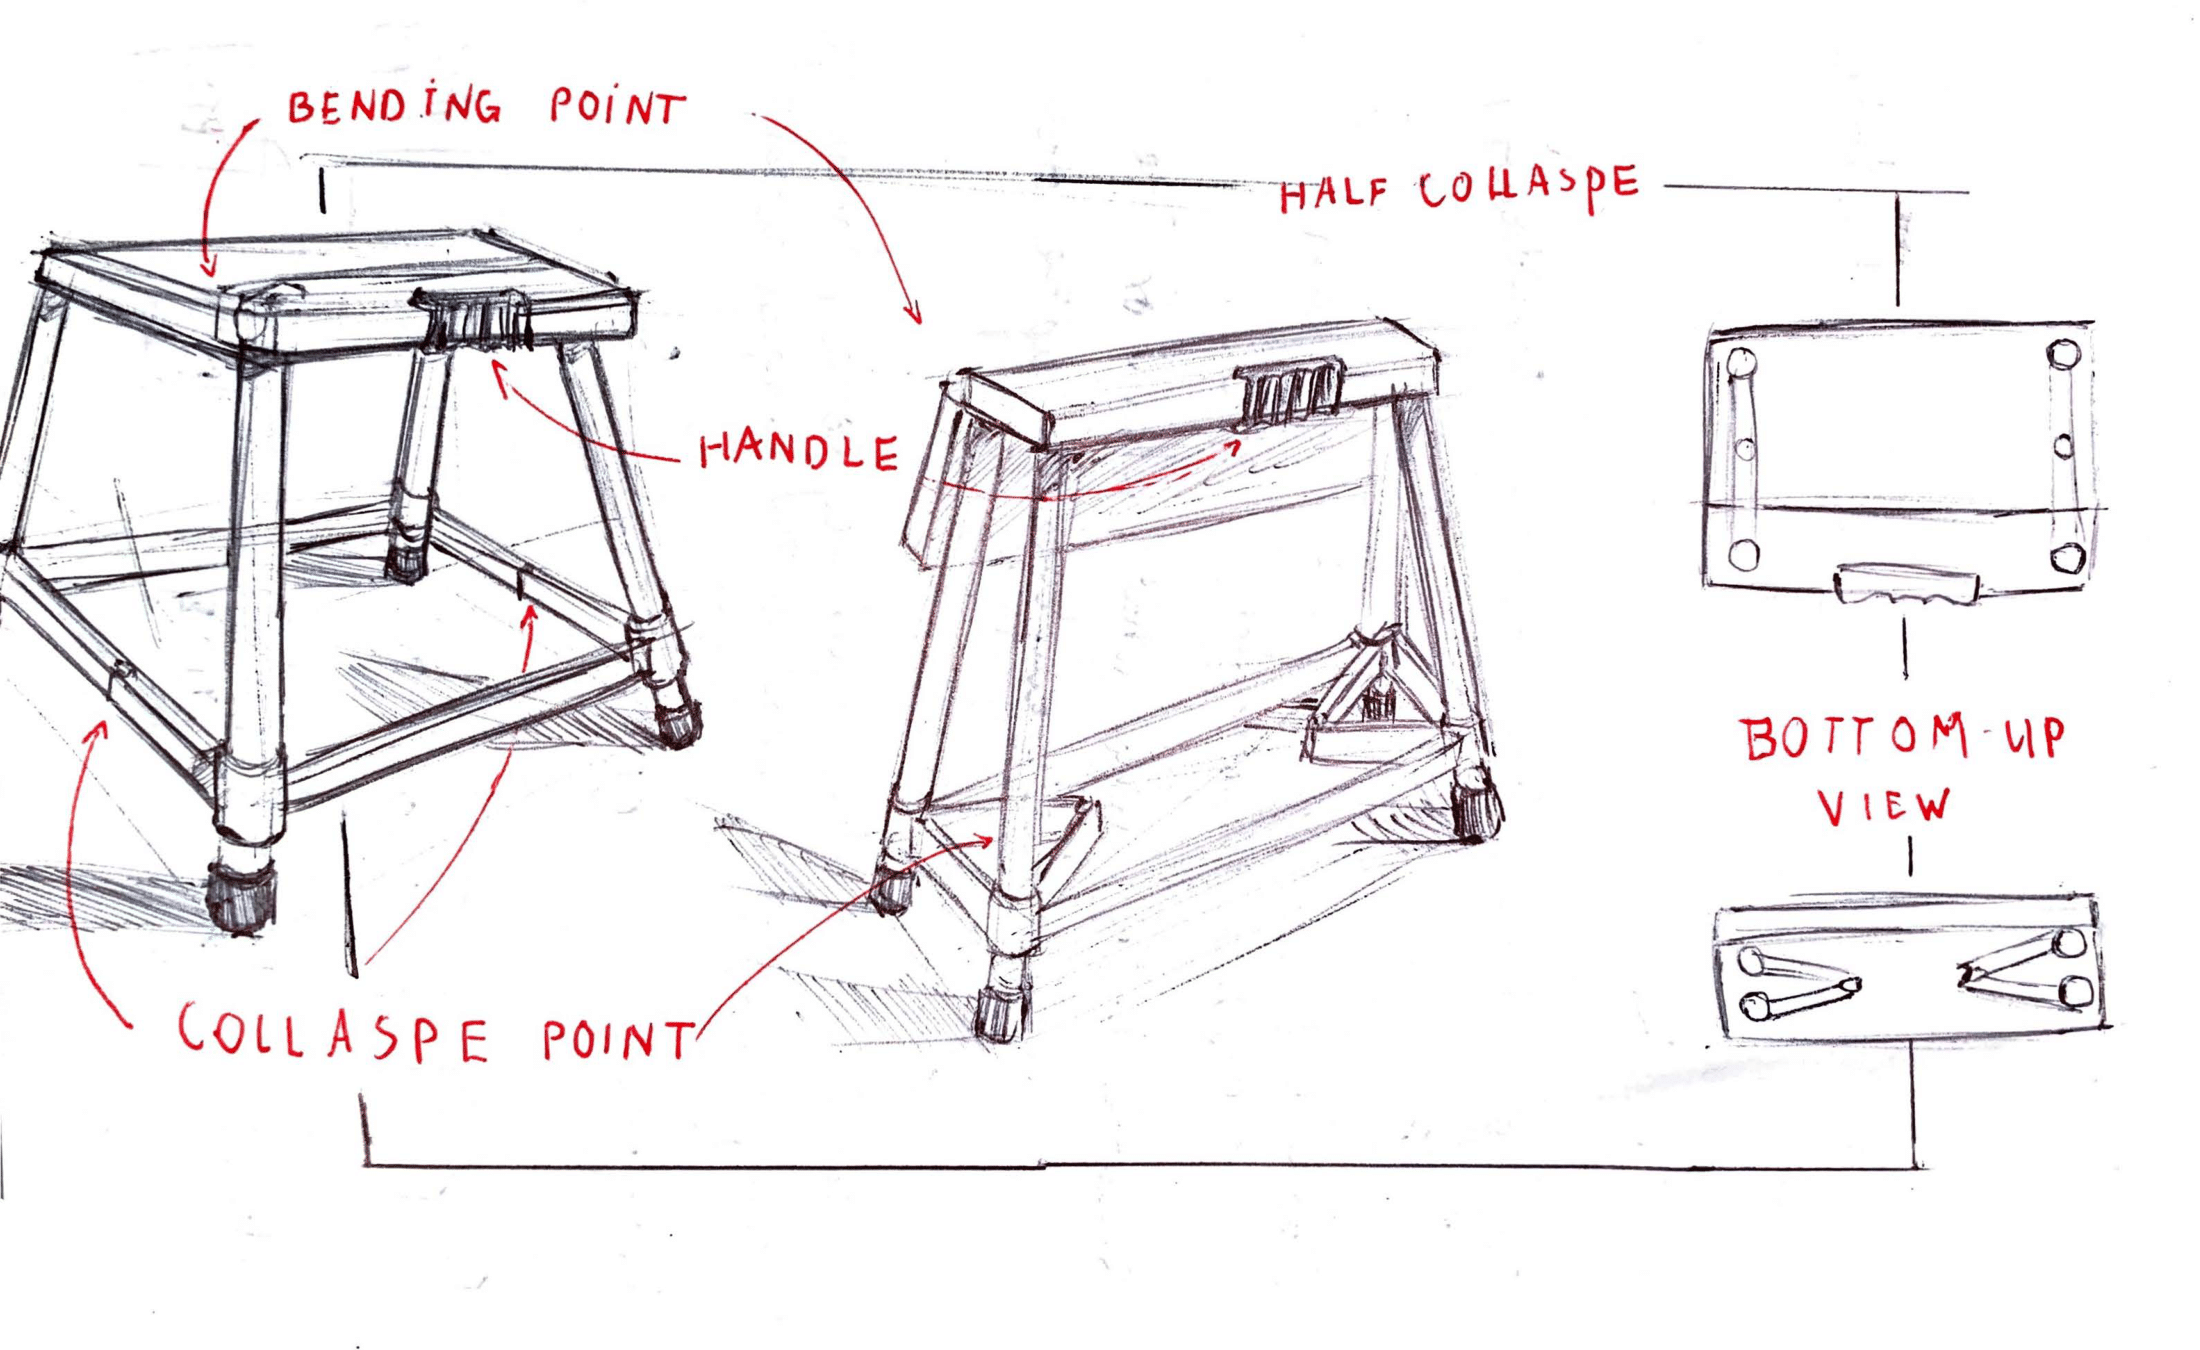 BENDING POINT
HALF COLLASPE
HANDLE
BOTTOM-UP
VIEW
COLLASPE POINT